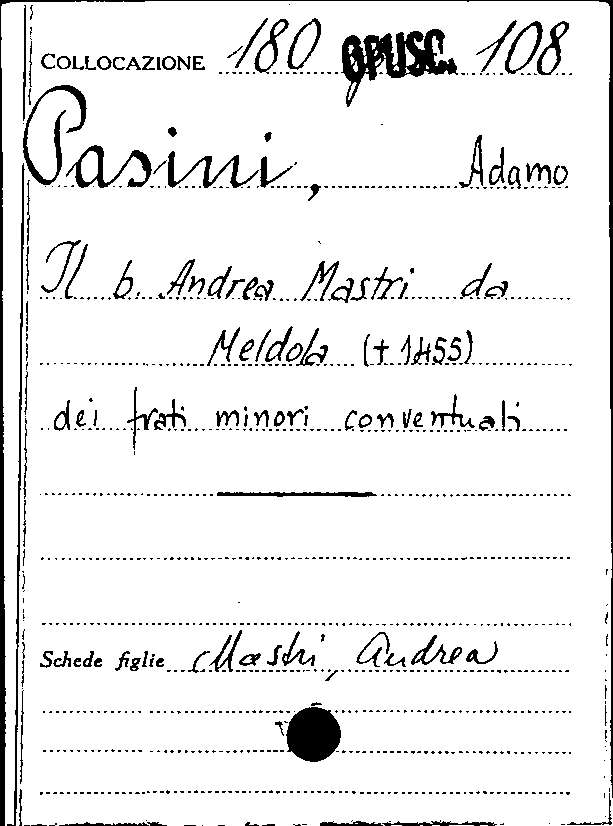 COLLOCAZIONE 180 OPUSC. 108
Pasini, Adamo
Il b. Andrea Mastri da
Meldola († 1455)
dei frati minori conventuali
Schede figlie Mastri, Andrea